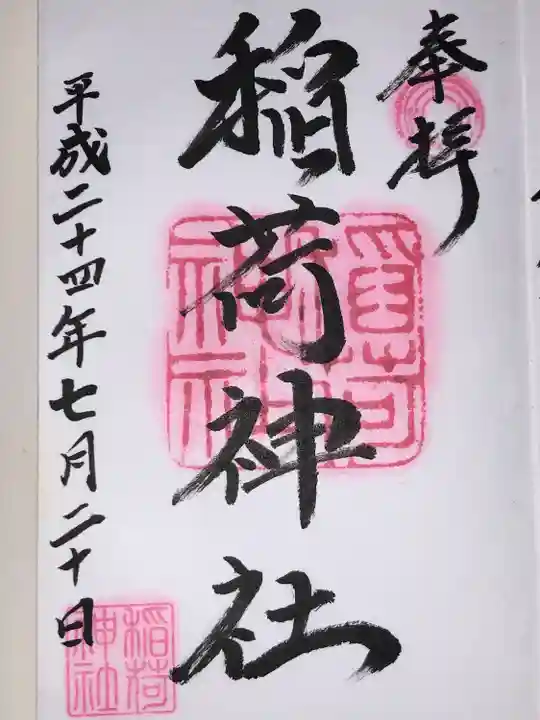 奉拝
稲荷神社
平成二十四年七月二十日
稲荷
神社